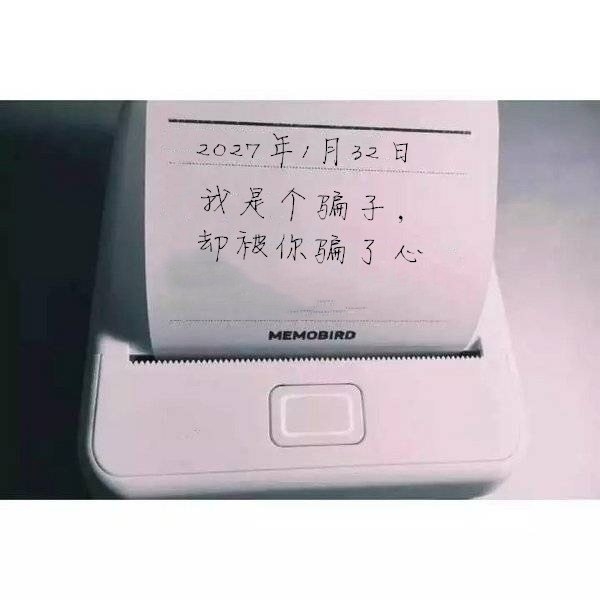 2027年1月32日
我是个骗子，
却被你骗了心
MEMOBIRD